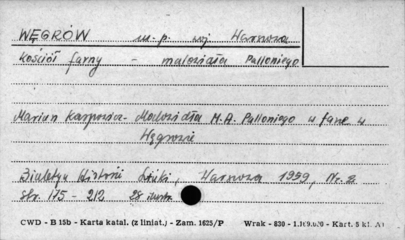 WĘGRÓW m. p. woj. Warszawa
Kościół farny - malowidła Palloniego
Marian Karpowicz - Malowidła M. A. Palloniego w farze w
Węgrowie
Biuletyn Historii Sztuki, Warszawa 1959, Nr. 2
str. 175 - 212 28 ilustr.
CWD - B 15b - Karta katal. (z liniat.) - Zam. 1625/P Wrak - 830 - Kart. 5 kl.